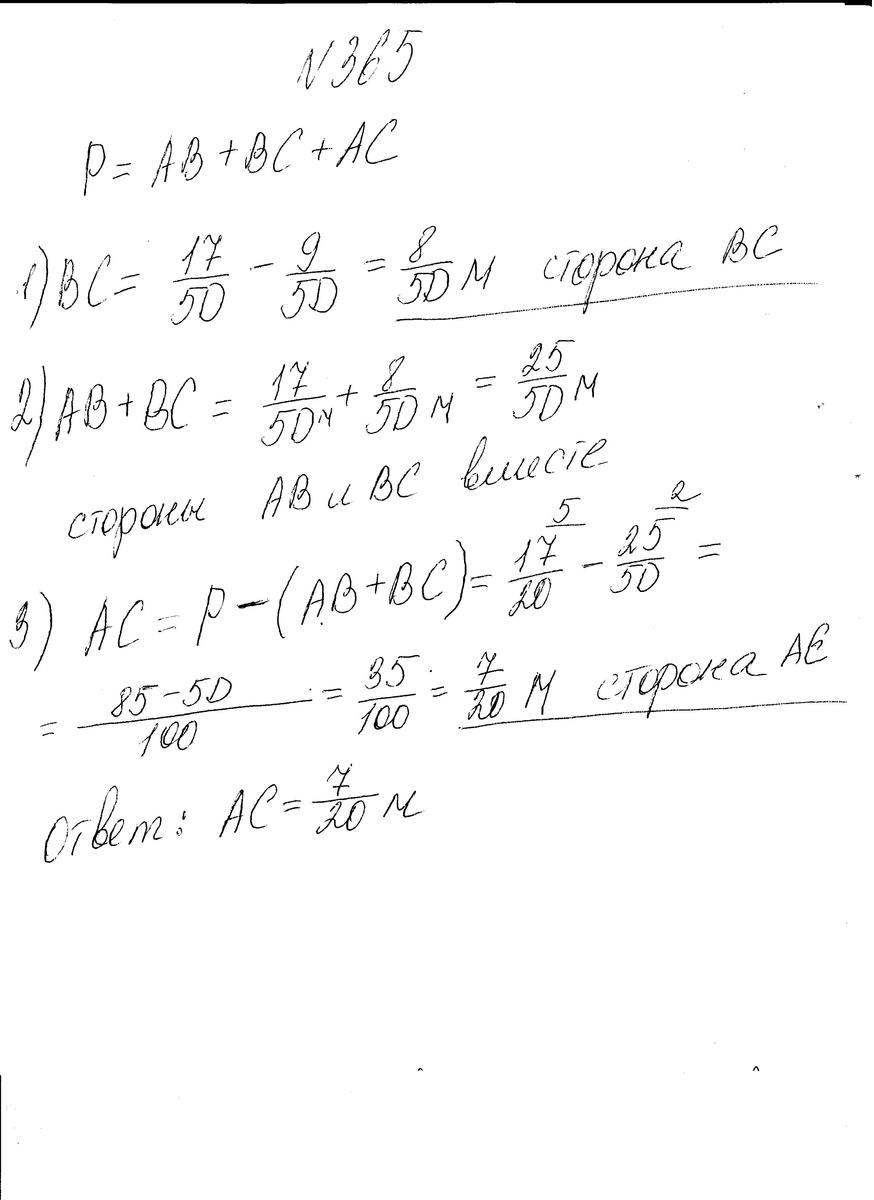 N365
P = AB + BC + AC
1) BC = 17/50 - 9/50 = 8/50 м сторона BC
2) AB + BC = 17/50 м + 8/50 м = 25/50 м
стороны AB и BC вместе
3) AC = P - (AB + BC) = 17/20 5 - 25/50 2 =
= 85-50/100 = 35/100 = 7/20 м сторона АС
Ответ: AC = 7/20 м